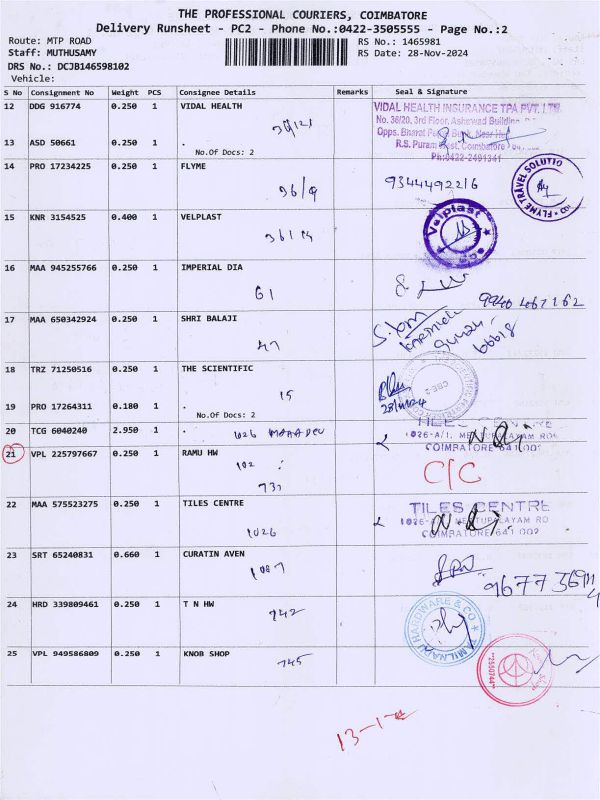 THE PROFESSIONAL COURIERS, COIMBATORE
Delivery Runsheet - PC2 - Phone No.:0422-3505555 - Page No.:2
Route: MTP ROAD RS No.: 1465981
Staff: MUTHUSAMY RS Date: 28-Nov-2024
DRS No.: DCJB146598102
Vehicle:
S No Consignment No Weight PCS Consignee Details Remarks Seal & Signature
12 DDG 916774 0.250 1 VIDAL HEALTH VIDAL HEALTH INSURANCE TPA PVT. LTD.
No. 36/20, 3rd Floor, Ashirwad Building
36/21
Opps. Bharat
13 ASD 50661 0.250 1 .
R.S. Puram Coimbatore
No.Of Docs: 2
Ph:0422-2491341
14 PRO 17234225 0.250 1 FLYME
36/9 9344492216 FLYME TRAVEL SOLUTIO
15 KNR 3154525 0.400 1 VELPLAST Velplast
36/14
16 MAA 945255766 0.250 1 IMPERIAL DIA
61 9940 467162
17 MAA 650342924 0.250 1 SHRI BALAJI
47 94424 66618
18 TRZ 71250516 0.250 1 THE SCIENTIFIC
15 CBE-2
19 PRO 17264311 0.180 1 . 28/11/2024
No.Of Docs: 2
20 TCG 6040240 2.950 1 . 1026 TILES CENTRE
1026-A/1, METTUPALAYAM ROA
COIMBATORE 641 002
21 VPL 225797667 0.250 1 RAMU HW
102 C/C
731
22 MAA 575523275 0.250 1 TILES CENTRE TILES CENTRE
1026 1026-A METTUPALAYAM RO
COIMBATORE 641 002
23 SRT 65240831 0.660 1 CURATIN AVEN
1087
24 HRD 339809461 0.250 1 T N HW
742 TAMILNADU HARDWARE & CO
25 VPL 949586809 0.250 1 KNOB SHOP
745 "2550744"